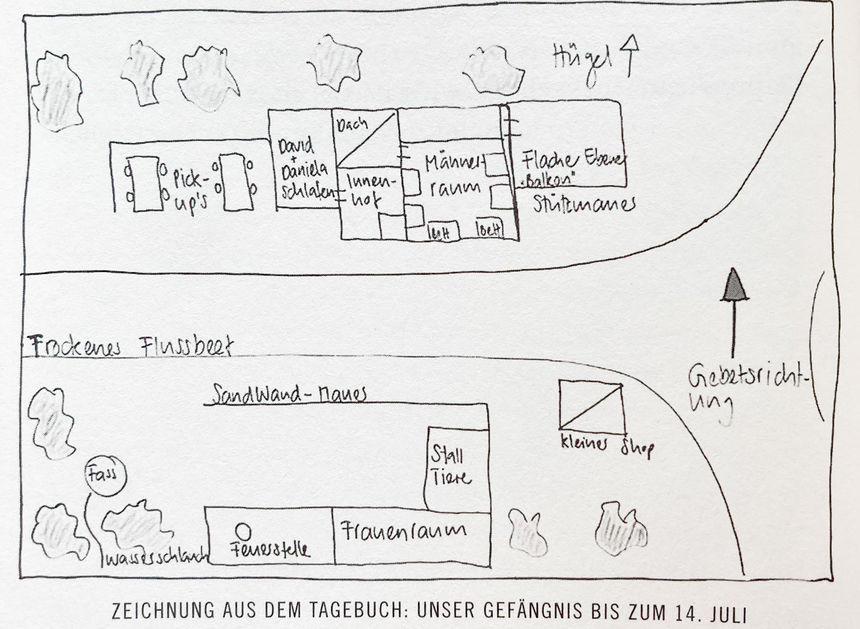 Hügel
Dach
David
+
Daniela
schlafen
Innen-
hof
Männer-
raum
Bett
Bett
Flache Ebene
„Balkon"
Stützmauer
Pick-
up's
Trockenes Flussbeet
Gebetsricht-
ung
Sandwand-Mauer
kleiner Shop
Stall
Tiere
Fass
Wasserschlauch
Feuerstelle
Frauenraum
ZEICHNUNG AUS DEM TAGEBUCH: UNSER GEFÄNGNIS BIS ZUM 14. JULI